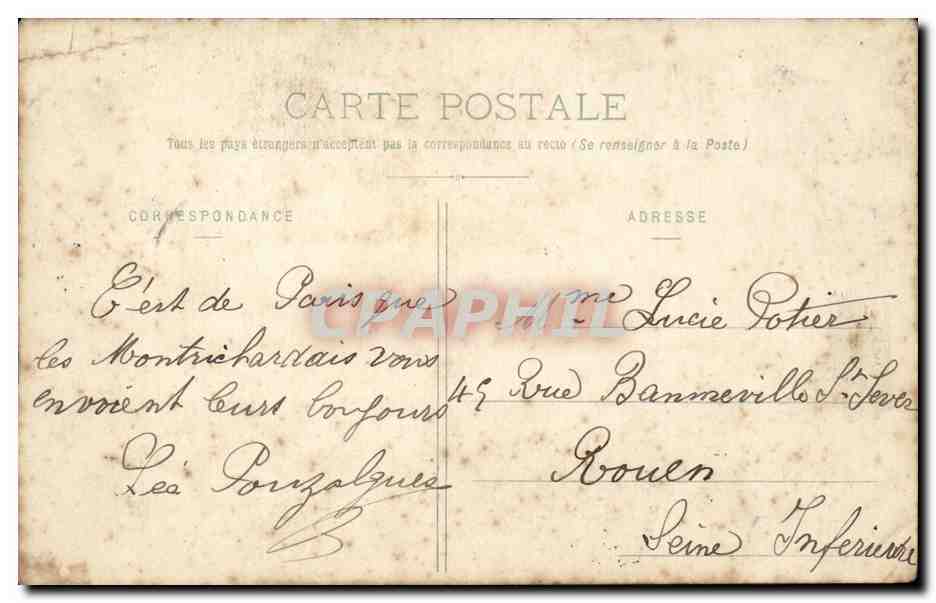 CARTE POSTALE
Tous les pays étrangers n'acceptent pas la correspondance au recto (Se renseigner à la Poste)
CORRESPONDANCE
C'est de Paris que
les Montrichardais vous
envoient leurs bonjours
Léa Pouzalgues
ADRESSE
Mme Lucie Potier
45 Rue Banmeville St Sever
Rouen
Seine Inferieure
CPAPHIL